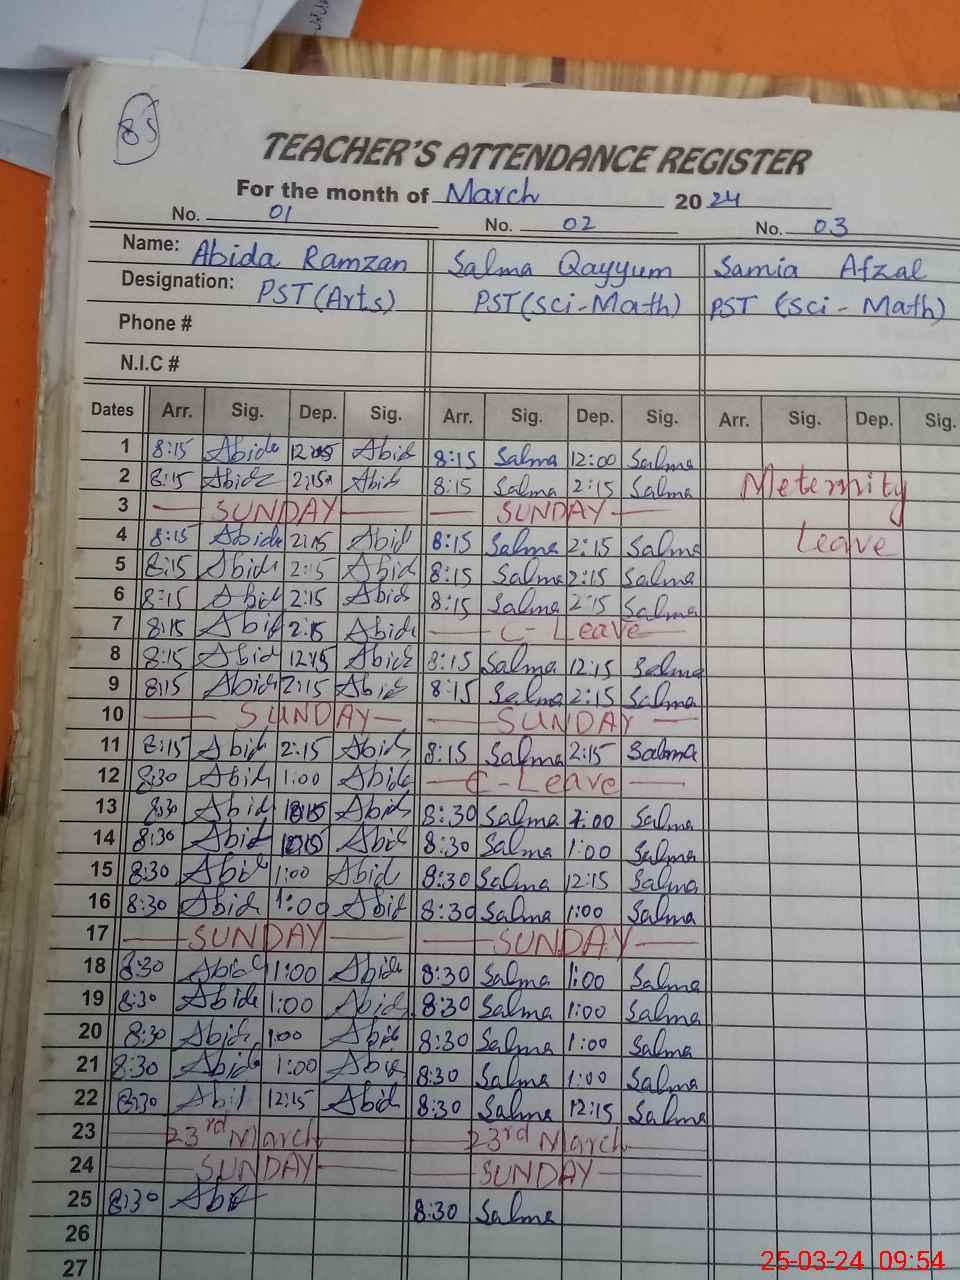 85
TEACHER'S ATTENDANCE REGISTER
For the month of March 2024
No. 01 No. 02 No. 03
Name: Abida Ramzan Salma Qayyum Samia Afzal
Designation: PST(Arts) PST(Sci-Math) PST (Sci-Math)
Phone #
N.I.C #
Dates Arr. Sig. Dep. Sig. Arr. Sig. Dep. Sig. Arr. Sig. Dep. Sig.
1 8:15 Abida Abid 8:15 Salma 12:00 Salma
2 8:15 Abida 2:15 Abid 8:15 Salma 2:15 Salma Meternity
3 SUNDAY SUNDAY
4 8:15 Abida 2:15 Abid 8:15 Salma 2:15 Salma Leave
5 8:15 Abid 2:15 Abid 8:15 Salma 2:15 Salma
6 8:15 Abid 2:15 Abid 8:15 Salma 2:15 Salma
7 8:15 Abid 2:15 Abida C-Leave
8 8:15 Abid 12:15 Abida 8:15 Salma 12:15 Salma
9 8:15 Abid 2:15 Abid 8:15 Salma 2:15 Salma
10 SUNDAY SUNDAY
11 8:15 Abid 2:15 Abid 8:15 Salma 2:15 Salma
12 8:30 Abid 1:00 Abida C-Leave
13 8:30 Abid Abid 8:30 Salma 1:00 Salma
14 8:30 Abid Abid 8:30 Salma 1:00 Salma
15 8:30 Abid 1:00 Abid 8:30 Salma 12:15 Salma
16 8:30 Abid 1:00 Abid 8:30 Salma 1:00 Salma
17 SUNDAY SUNDAY
18 8:30 Abid 1:00 Abida 8:30 Salma 1:00 Salma
19 8:30 Abida 1:00 Abida 8:30 Salma 1:00 Salma
20 8:30 Abida 1:00 Abid 8:30 Salma 1:00 Salma
21 8:30 Abida 1:00 Abid 8:30 Salma 1:00 Salma
22 8:30 Abid 12:15 Abid 8:30 Salma 12:15 Salma
23 23rd March 23rd March
24 SUNDAY SUNDAY
25 8:30 Abid 8:30 Salma
26
27
25-03-24 09:54